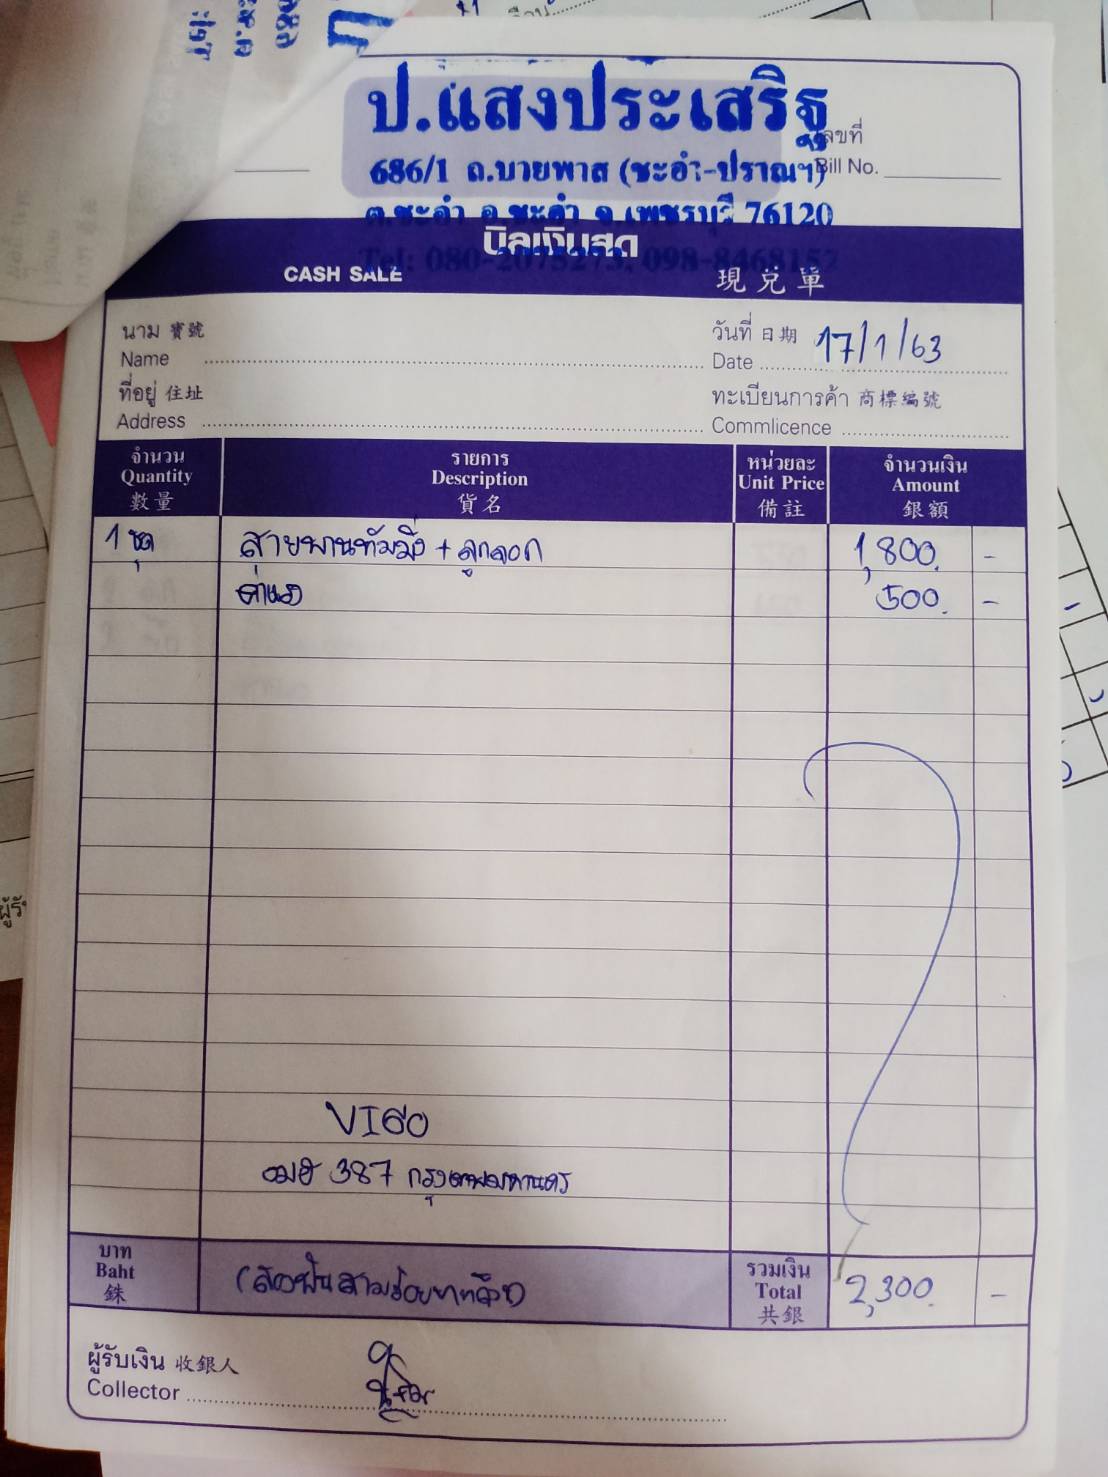 ป.แสงประเสริฐ
เลขที่
686/1 ถ.บายพาส (ชะอำ-ปราณฯ)
Bill No.
ต.ชะอำ อ.ชะอำ จ.เพชรบุรี 76120
บิลเงินสด
CASH SALE
現兌單
นาม 寶號
วันที่ 日期 17/1/63
Name
Date
ที่อยู่ 住址
ทะเบียนการค้า 商標編號
Address
Commlicence
จำนวน รายการ หน่วยละ จำนวนเงิน
Quantity Description Unit Price Amount
數量 貨名 備註 銀額
1 ชุด สายพานทัมมิ่ง + ลูกลอก 1,800. -
ค่าแรง 500. -
VIGO
387 กรุงเทพมหานคร
บาท รวมเงิน
Baht (สองพันสามร้อยบาทถ้วน) Total 2,300. -
銖 共銀
ผู้รับเงิน 收銀人
Collector